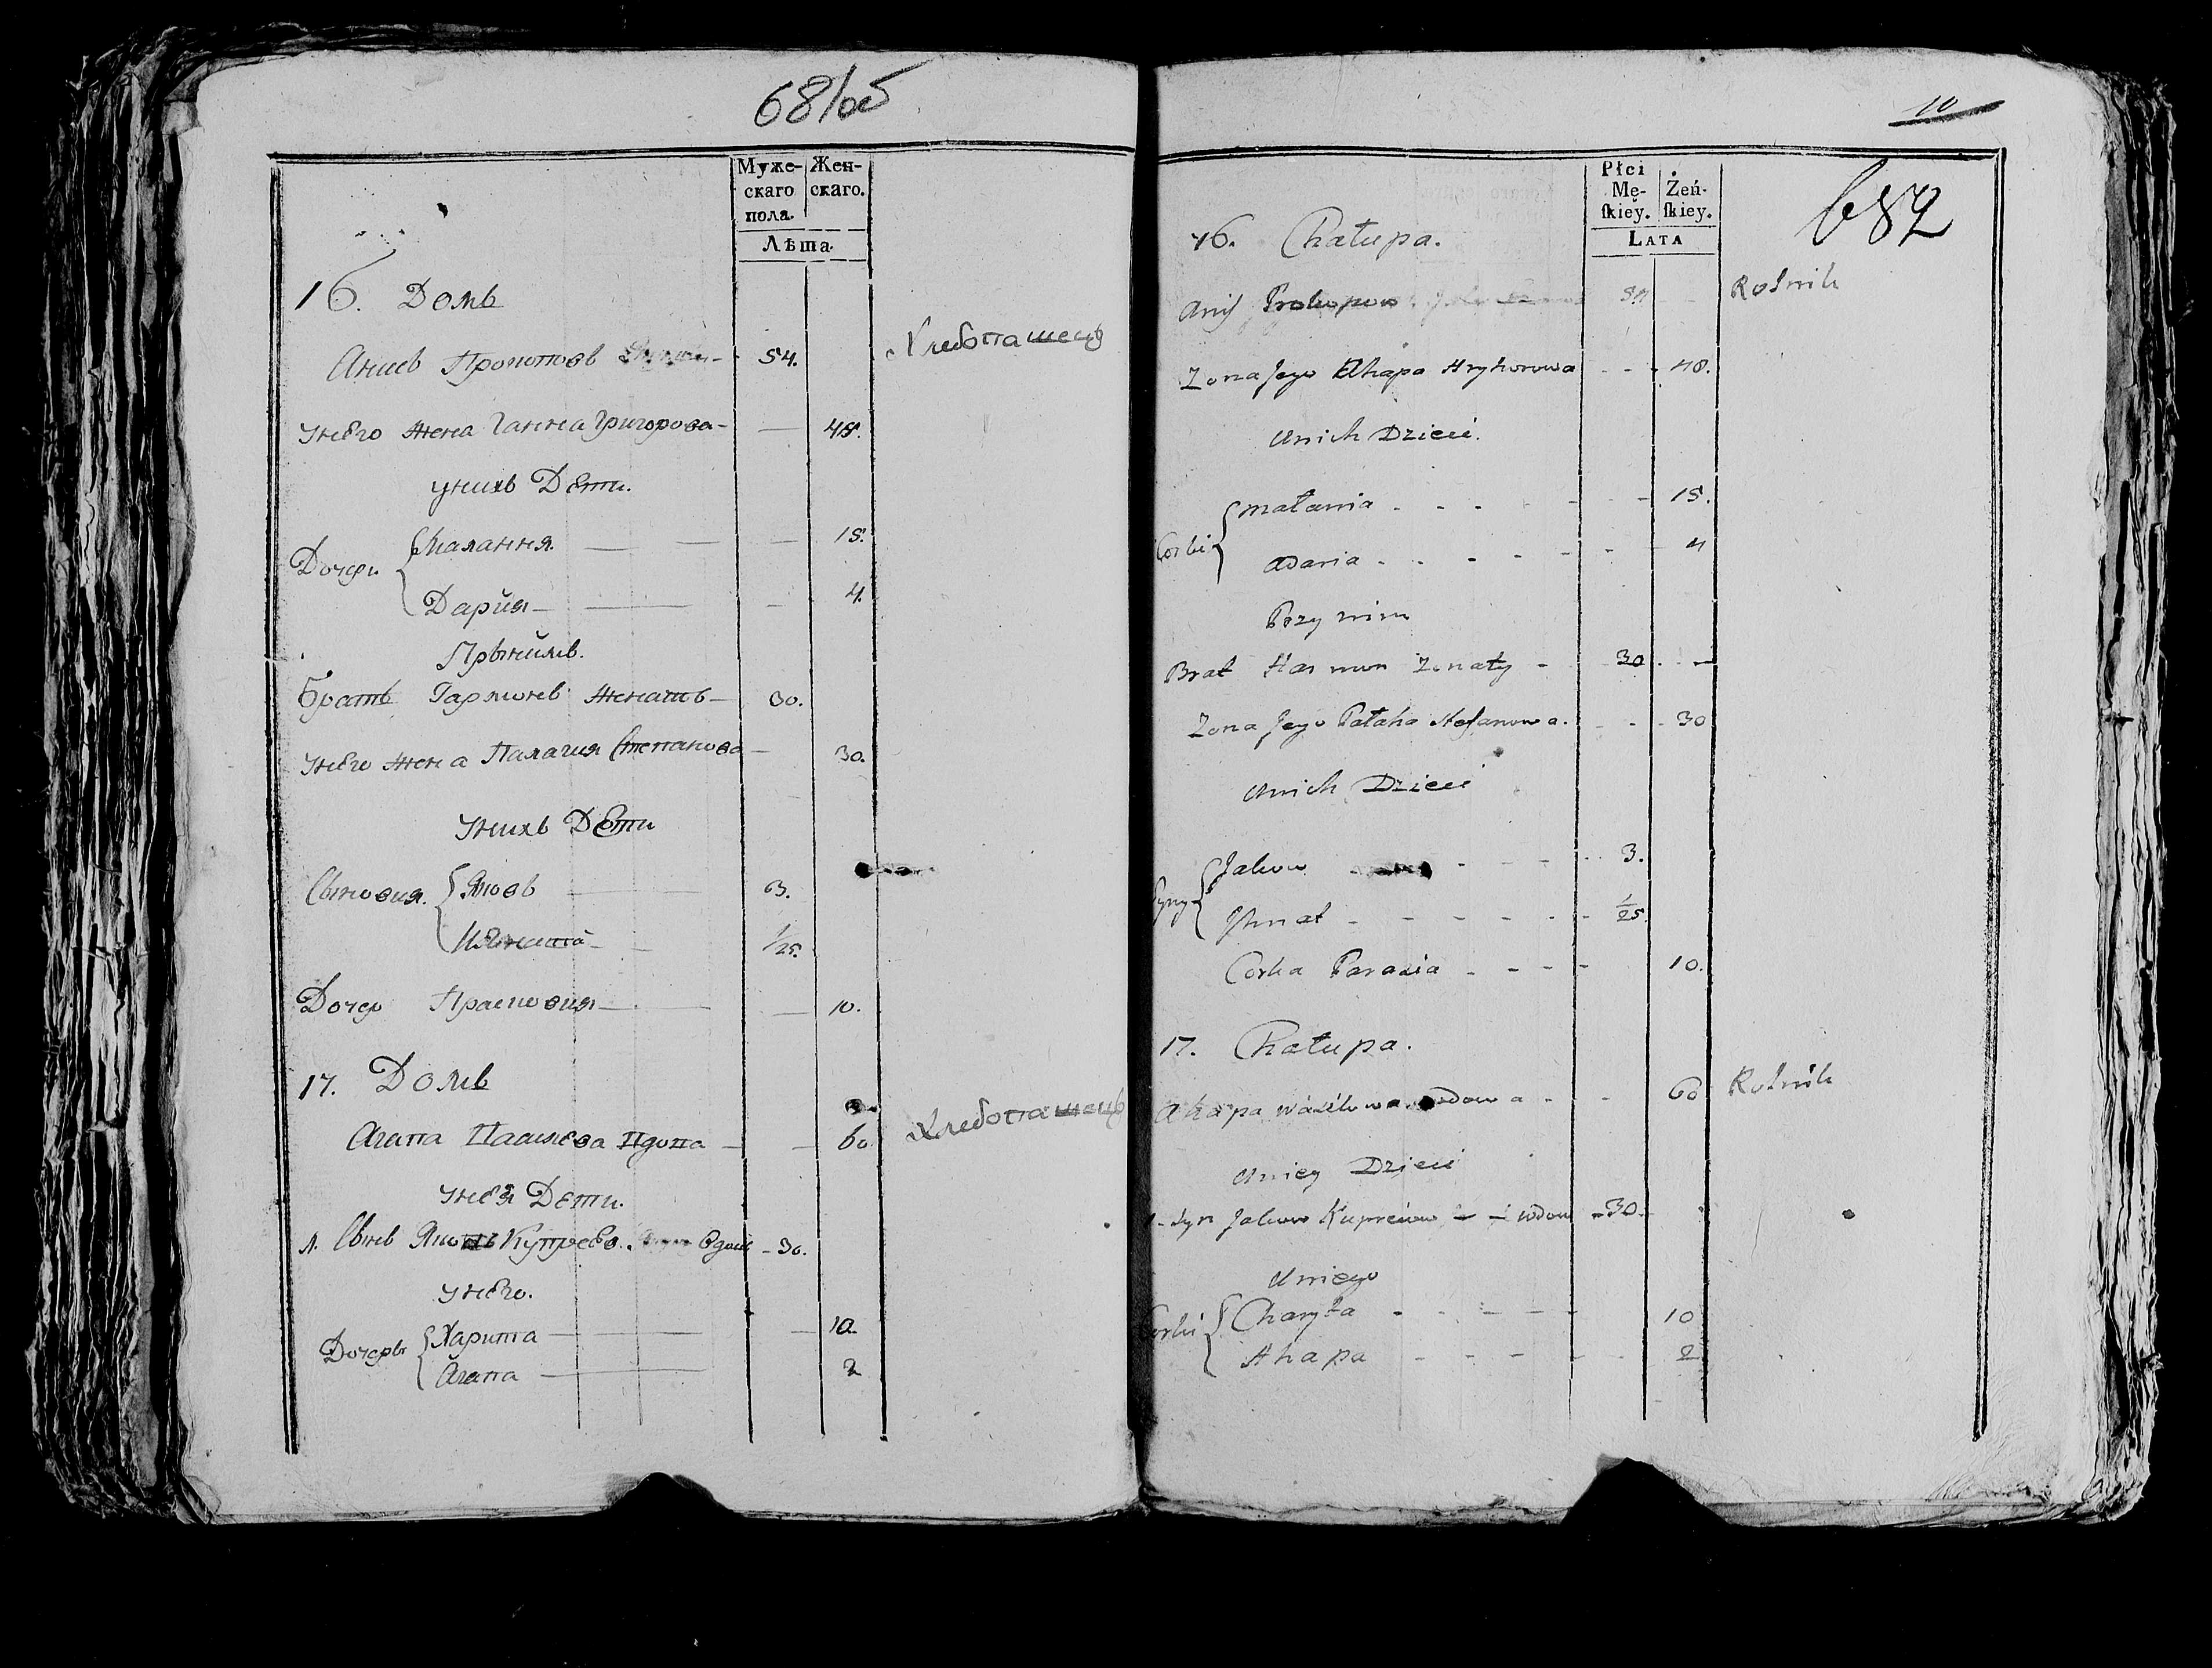 681об
Муже-
скаго
пола.
Жен-
скаго.
Лѣта.
16. Домъ
Аниeв Прокопов 54. Хлебопашецъ
у него жена Ганна Григорова — 48.
у нихъ Дети.
Дочери Малання — 15.
Дария — 4.
При нимъ.
Братъ Гармонъ женатъ — 30.
у него жена Палагия Степанова — 30.
у нихъ Дети
Сыновия. Яковъ 3.
Игнатъ 1/25.
Дочер Прасковия — 10.
17. Домъ
Агапа Василева вдова — 60. Хлебопашецъ
у нея Дети.
1. Сынъ Яковъ Купреев. вдов — 30.
у него.
Дочеры Харита — 10.
Агапа — 2
10
682
Płci
Mę-
ſkieỹ.
Żeń-
ſkiey.
LATA
16. Chałupa.
Anis Prokopow 54 Rolnik
Żona Jego Ahapa Hryhorowa - - - 48.
u nich Dzieci.
Corki Małania - - - 15.
Adaria - - - 4
Przy nim
Brat Harmon Żonaty - 30. -
Żona Jego Pałaha Stefanowa. - - - 30
u nich Dzieci
Syny Jakow - - - 3.
Ihnat - - - 1/25.
Corka Parasia - - - 10.
17. Chałupa.
Ahapa Wasilowa wdowa - - 60 Rolnik
u niey Dzieci
1 - Syn Jakow Kupreiow wdow - 30.
u niego
Corki Charyta - - - 10
Ahapa - - - 2